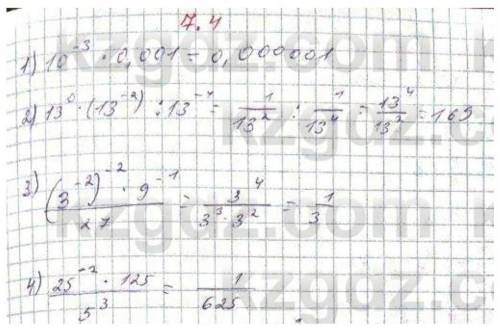 7.4
1) 10⁻³ · 0,001 = 0,000001
2) 13⁰ · (13⁻²) : 13⁻⁴ = 1/13² : 1/13⁴ = 13⁴/13² = 169
3) (3⁻²)⁻² · 9⁻¹ / 27 = 3⁴ / 3³ · 3² = 1/3
4) 25⁻² · 125 / 5³ = 1/625
kzgdz.com
kzgdz.com